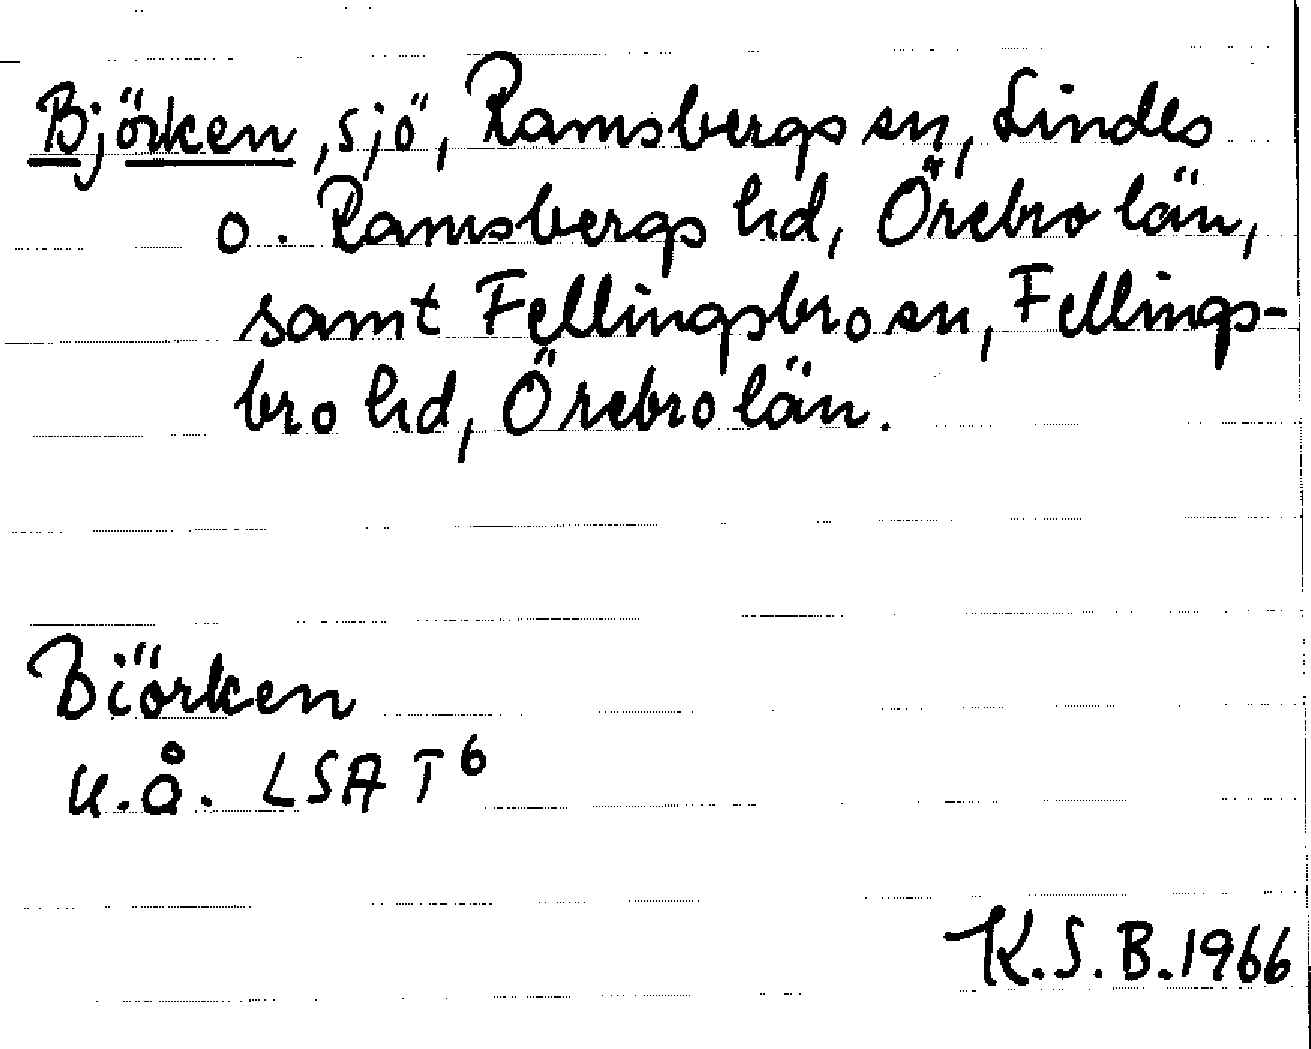 Björken, sjö, Ramsbergs sn, Lindes
o. Ramsbergs hd, Örebro län,
samt Fellingsbro sn, Fellings-
bro hd, Örebro län.
Biörken
u.å. LSA T⁶
K.S.B. 1966